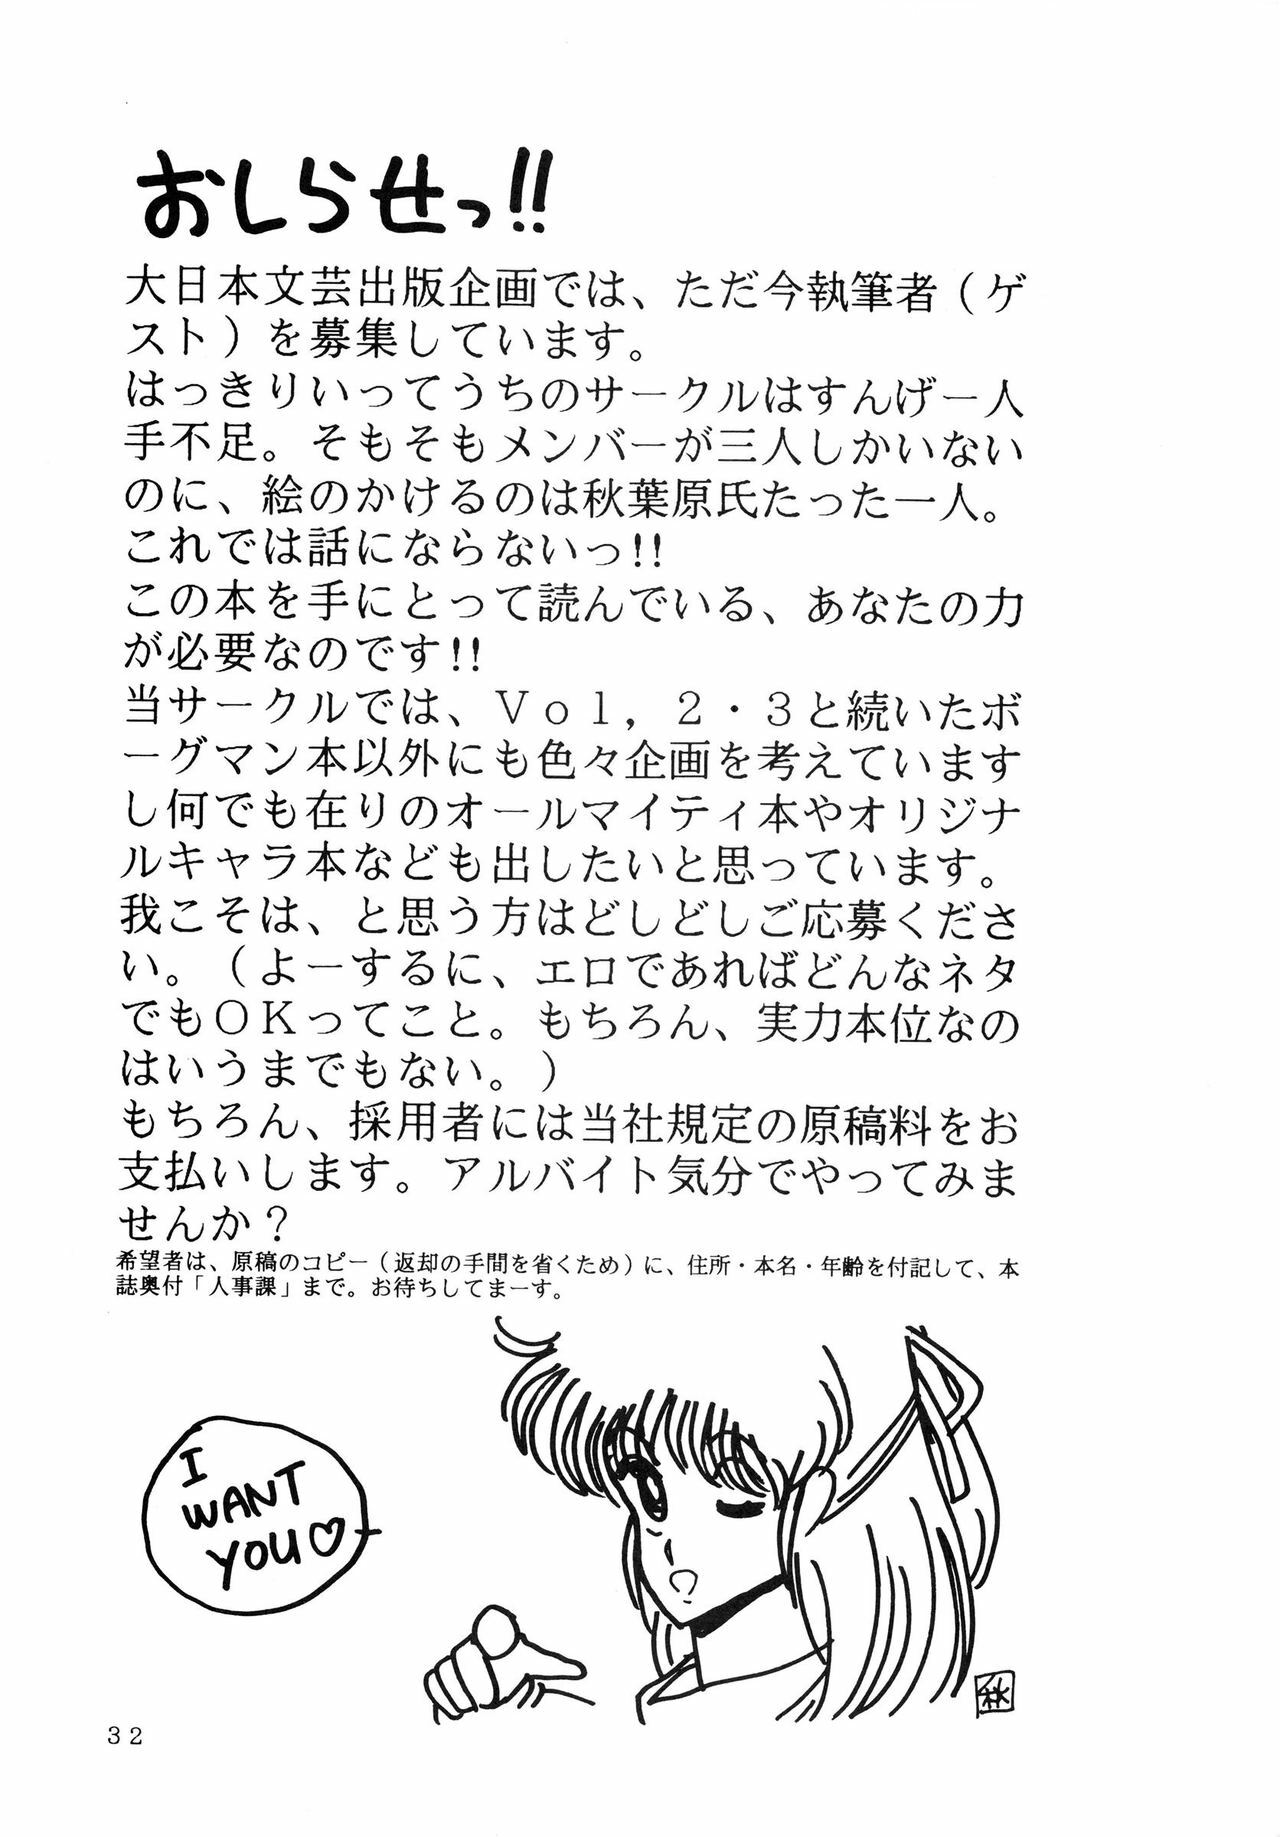 おしらせっ!!
大日本文芸出版企画では、ただ今執筆者（ゲ
スト）を募集しています。
はっきりいってうちのサークルはすんげー人
手不足。そもそもメンバーが三人しかいない
のに、絵のかけるのは秋葉原氏たった一人。
これでは話にならないっ!!
この本を手にとって読んでいる、あなたの力
が必要なのです!!
当サークルでは、Ｖｏｌ，２・３と続いたボ
ーグマン本以外にも色々企画を考えています
し何でも在りのオールマイティ本やオリジナ
ルキャラ本なども出したいと思っています。
我こそは、と思う方はどしどしご応募くださ
い。（よーするに、エロであればどんなネタ
でもＯＫってこと。もちろん、実力本位なの
はいうまでもない。）
もちろん、採用者には当社規定の原稿料をお
支払いします。アルバイト気分でやってみま
せんか？
希望者は、原稿のコピー（返却の手間を省くため）に、住所・本名・年齢を付記して、本
誌奥付「人事課」まで。お待ちしてまーす。
I
WANT
YOU♡
秋
３２